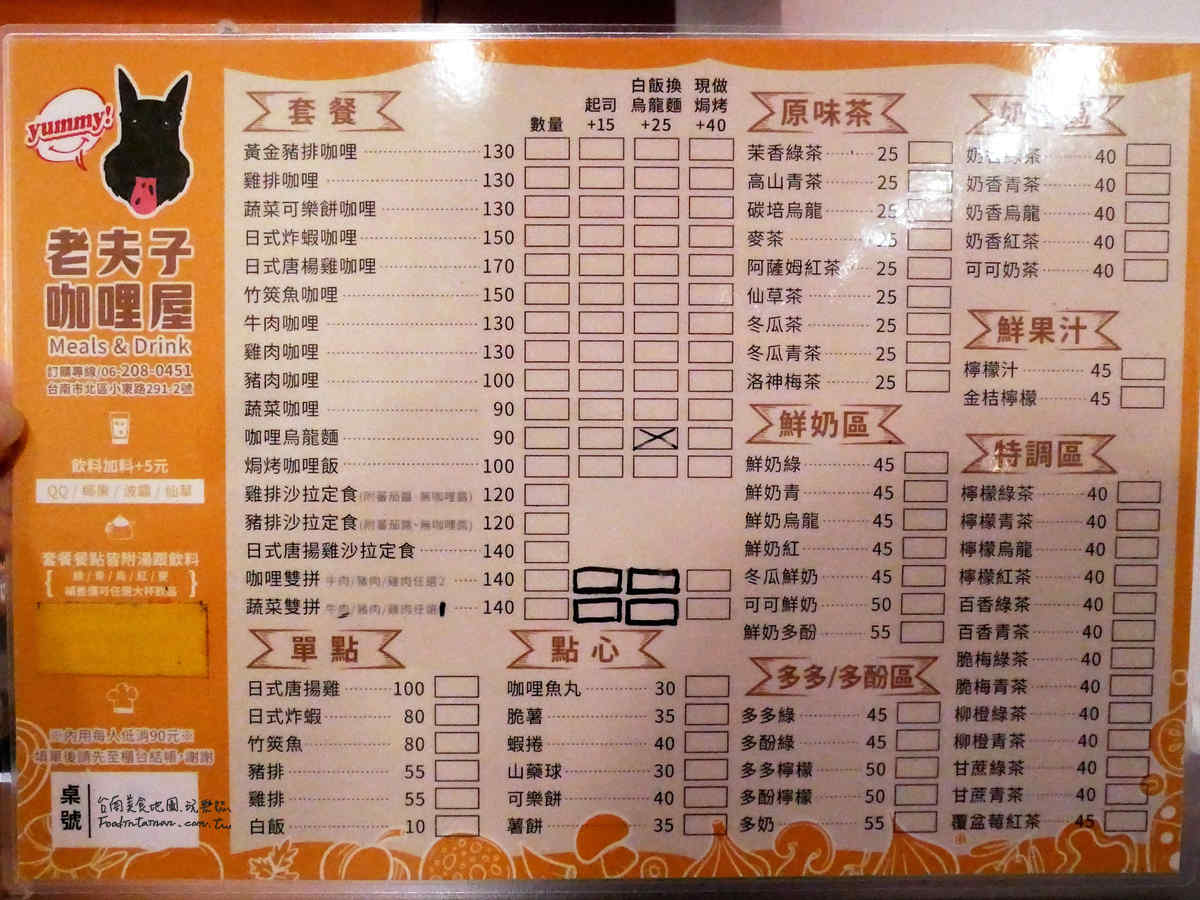 yummy!
老夫子
咖哩屋
Meals & Drink
訂購專線/06-208-0451
台南市北區小東路291-2號
飲料加料+5元
QQ / 椰果 / 波霸 / 仙草
套餐餐點皆附湯跟飲料
綠 / 青 / 烏 / 紅 / 麥
補差價可任選大杯飲品
※內用每人低消90元※
填單後請先至櫃台結帳*謝謝
桌號
台南美食地圖.玩樂
Foodintainan.com.tw
套餐
數量
起司
+15
白飯換
烏龍麵
+25
現做
焗烤
+40
黃金豬排咖哩 130
雞排咖哩 130
蔬菜可樂餅咖哩 130
日式炸蝦咖哩 150
日式唐楊雞咖哩 170
竹筴魚咖哩 150
牛肉咖哩 130
雞肉咖哩 130
豬肉咖哩 100
蔬菜咖哩 90
咖哩烏龍麵 90
焗烤咖哩飯 100
雞排沙拉定食(附蕃茄醬、無咖哩醬) 120
豬排沙拉定食(附蕃茄醬、無咖哩醬) 120
日式唐揚雞沙拉定食 140
咖哩雙拼 牛肉/豬肉/雞肉任選2 140
蔬菜雙拼 牛肉/豬肉/雞肉任選1 140
單點
日式唐揚雞 100
日式炸蝦 80
竹筴魚 80
豬排 55
雞排 55
白飯 10
點心
咖哩魚丸 30
脆薯 35
蝦捲 40
山藥球 30
可樂餅 40
薯餅 35
原味茶
茉香綠茶 25
高山青茶 25
碳培烏龍 25
麥茶 25
阿薩姆紅茶 25
仙草茶 25
冬瓜茶 25
冬瓜青茶 25
洛神梅茶 25
鮮奶區
鮮奶綠 45
鮮奶青 45
鮮奶烏龍 45
鮮奶紅 45
冬瓜鮮奶 45
可可鮮奶 50
鮮奶多酚 55
多多/多酚區
多多綠 45
多酚綠 45
多多檸檬 50
多酚檸檬 50
多奶 55
奶 區
奶香綠茶 40
奶香青茶 40
奶香烏龍 40
奶香紅茶 40
可可奶茶 40
鮮果汁
檸檬汁 45
金桔檸檬 45
特調區
檸檬綠茶 40
檸檬青茶 40
檸檬烏龍 40
檸檬紅茶 40
百香綠茶 40
百香青茶 40
脆梅綠茶 40
脆梅青茶 40
柳橙綠茶 40
柳橙青茶 40
甘蔗綠茶 40
甘蔗青茶 40
覆盆莓紅茶 45